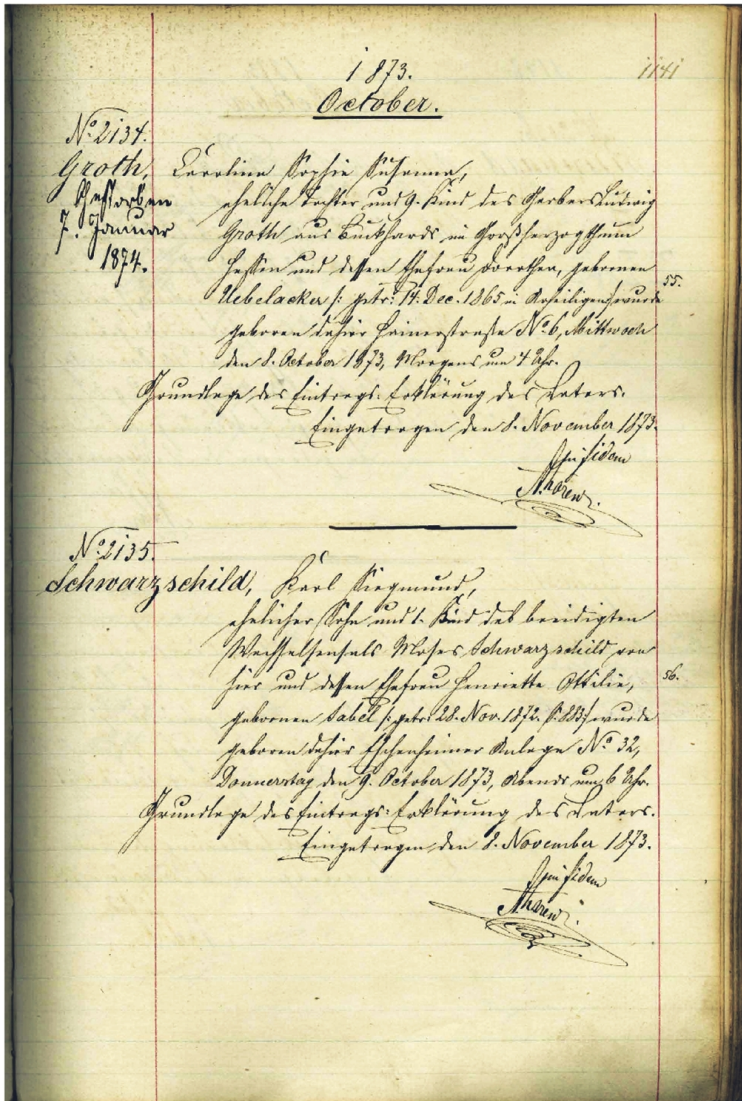 1873.
1141
October.
No. 2134.
Groth, Caroline Sophie Susanna,
Gestorben
7. Januar
1874.
eheliche Tochter und 9. Kind des Gerbers Ludwig
Groth aus Burkhards im Großherzogthum
Hessen und dessen Ehefrau Dorothea, gebornen
55.
Uebelacker /: getr: 14. Dec. 1865 in :/ wurde
geboren dahier Hainerstraße No. 6, Mittwoch
den 8. October 1873, Morgens um 4 Uhr.
Grundlage des Eintrags: Erklärung des Vaters.
Eingetragen den 8. November 1873.
In fidem
No. 2135.
Schwarzschild, Karl Siegmund,
ehelicher Sohn und 1. Kind des beeidigten
Wechselsensals Moses Schwarzschild von
56.
hier und dessen Ehefrau Henriette Ottilie,
gebornen Sabel /: getr: 28. Nov. 1872. S. 883 :/ wurde
geboren dahier Eschenheimer Anlage No. 32,
Donnerstag den 9. October 1873, Abends um 6 Uhr.
Grundlage des Eintrags: Erklärung des Vaters.
Eingetragen den 8. November 1873.
In fidem